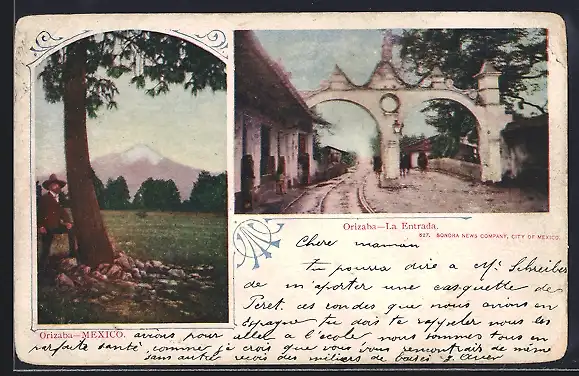 Orizaba—La Entrada.
627. SONORA NEWS COMPANY, CITY OF MEXICO.
Chere maman
tu pourra dire a Mr. Schreiber
de m'aporter une casquette de
ces que nous avions en
Espagne tu dois te rappeler nous les
Orizaba—MEXICO. avions pour aller a l'école nous sommes tous en
parfaite santé comme je crois que vous vous rencontrais de même
sans autre recois des miliers de